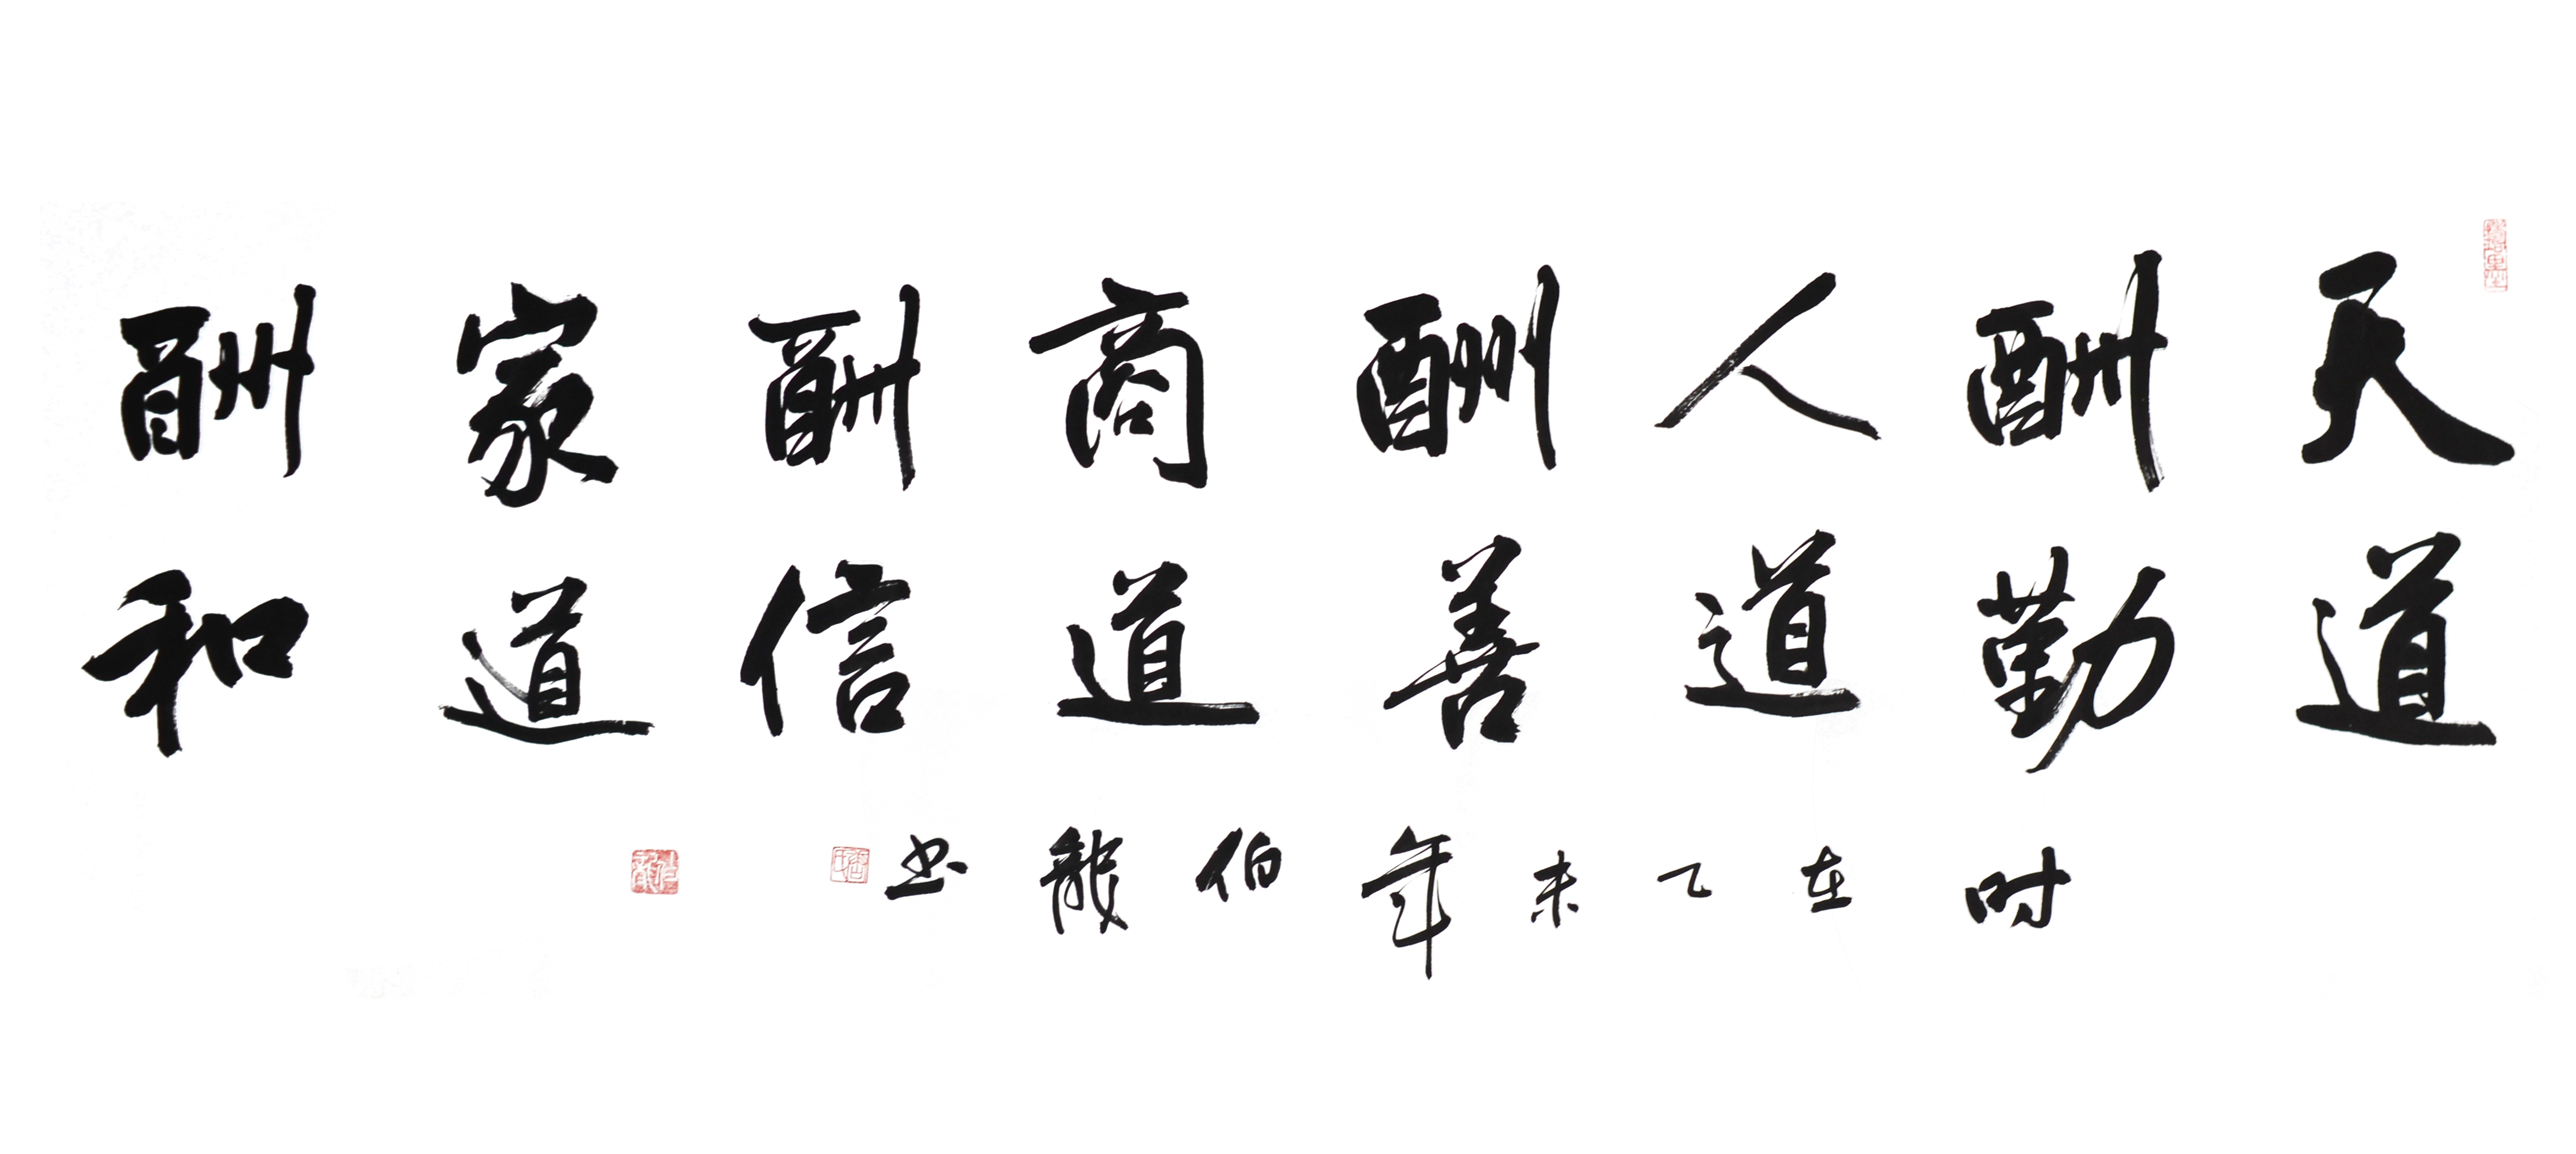 天道
酬勤
人道
酬善
商道
酬信
家道
酬和
时在乙未年伯龍书